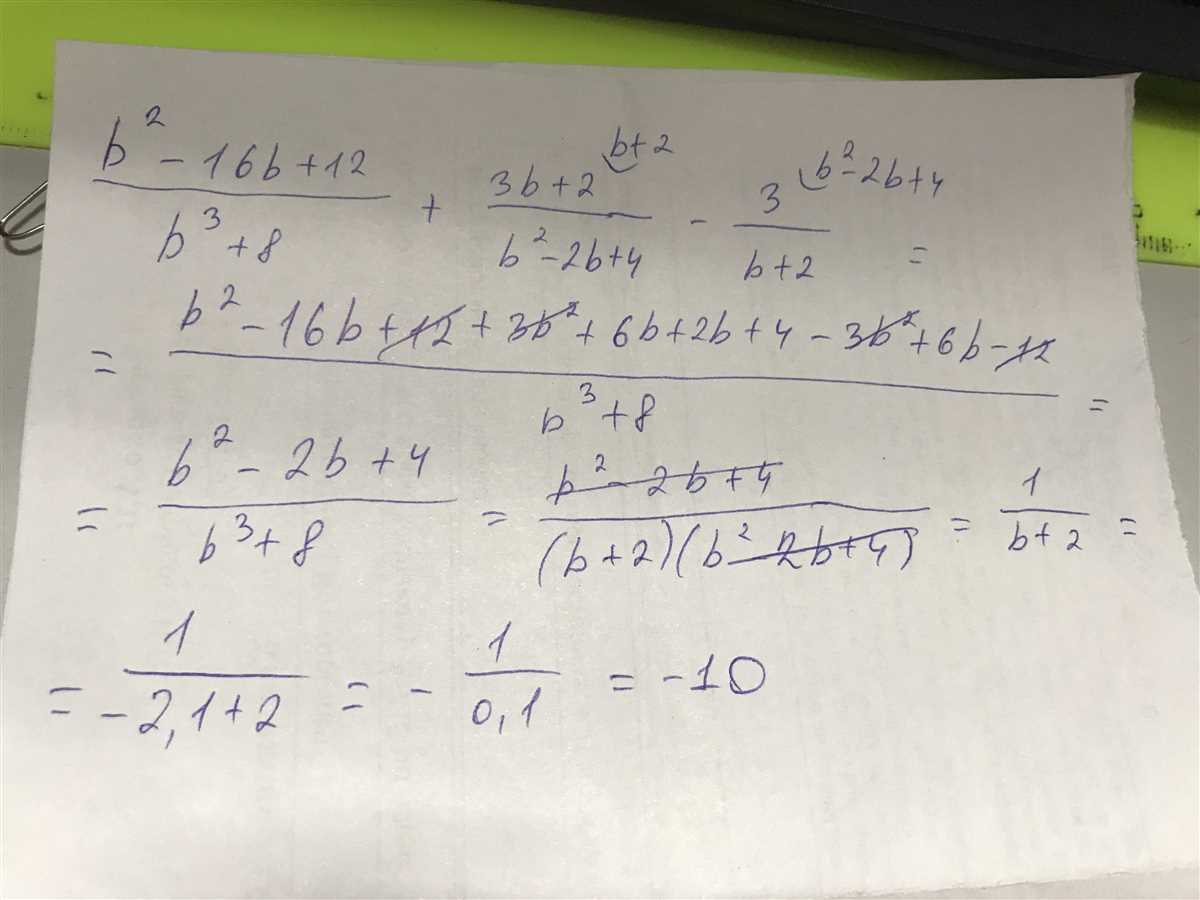 (b² - 16b + 12)/(b³ + 8) + (3b + 2)/(b² - 2b + 4) ⌣b+2 - 3/(b + 2) ⌣b² - 2b + 4 =
= (b² - 16b + 12 + 3b² + 6b + 2b + 4 - 3b² + 6b - 12)/(b³ + 8) =
= (b² - 2b + 4)/(b³ + 8) = (b² - 2b + 4)/((b + 2)(b² - 2b + 4)) = 1/(b + 2) =
= 1/(-2,1 + 2) = - 1/(0,1) = -10